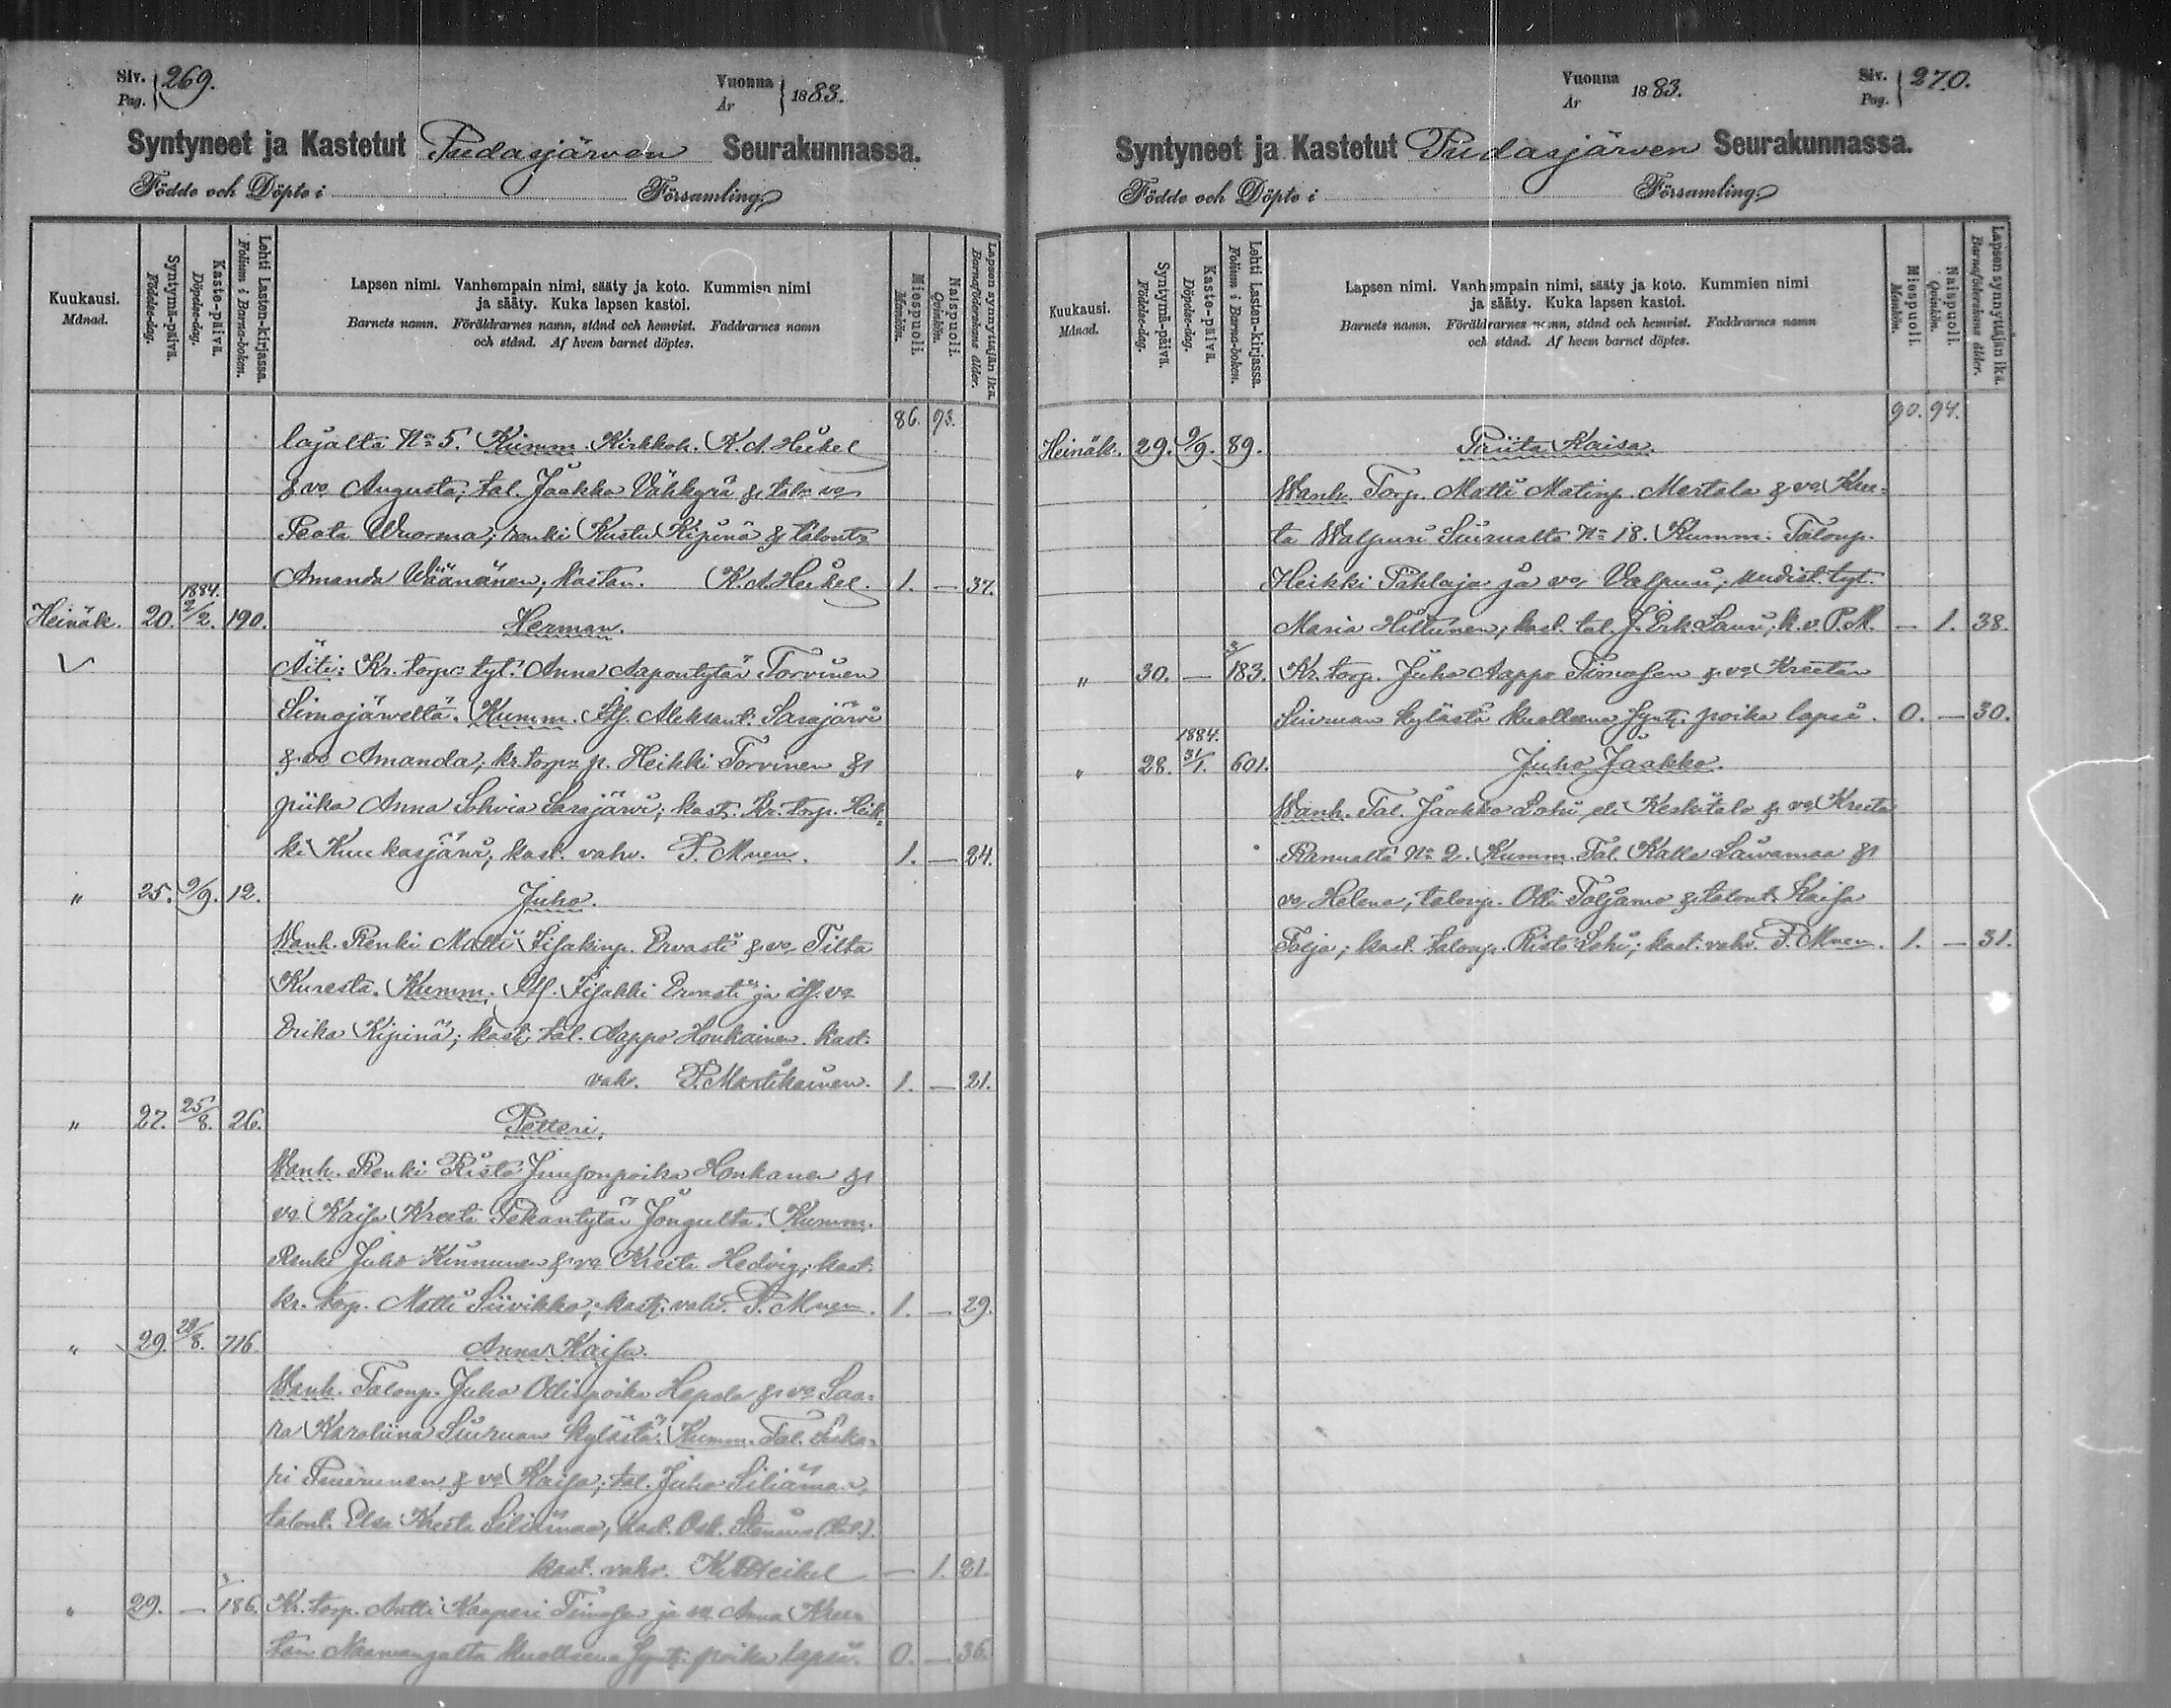 Siv. 269.
Pag.
Vuonna 1883.
År
Syntyneet ja Kastetut Pudasjärven Seurakunnassa.
Födde och Döpte i Församling
Kuukausi.
Månad.
Syntymä-päivä.
Födelse-dag.
Kaste-päivä.
Döpelse-dag.
Lehti Lasten-kirjassa.
Folium i Barna-boken.
Lapsen nimi. Vanhempain nimi, sääty ja koto. Kummien nimi
ja sääty. Kuka lapsen kastoi.
Barnets namn. Föräldrarnes namn, stånd och hemvist. Faddrarnes namn
och stånd. Af hvem barnet döptes.
Miespuoli.
Mankön.
Naispuoli.
Qvinkön.
Lapsen synnyttäjän ikä.
Barnaföderskans ålder.
86. 93.
lajalta No 5. Kumm. Kirkkoh. K. A. Heikel
& vo Augusta; tal. Jaakko Vähkyrä & tal. vo
Peata Wuorma; renki Kustu Kipinä & talont.
Amanda Väänänen; kastan. K. A. Heikel. 1. — 37.
1884.
Heinäk. 20. 2/2. 190. Herman.
Äiti: Kr. torp. tyt. Anna Aapontytär Torvinen
Simojärveltä. Kumm. Itf. Aleksant. Sarajärvi
& vo Amanda; kr. torp. p. Heikki Torvinen &
piika Anna Sohvia Sarajärvi; kast. kr. torp. Heik-
ki Kuukasjärvi; kast. vahv. P. Mnen. 1. — 24.
" 25. 9/9. 12. Juho.
Wanh. Renki Matti Iisakinp. Ervasti & vo Tilta
Kuresta. Kumm. Itf. Iisakki Ervasti ja itf. vo
Erika Kipinä; kast. tal. Aappo Honkainen. kast.
vahv. P. Martikainen. 1. — 21.
" 27. 25/8. 26. Petteri.
Wanh. Renki Risto Juusonpoika Honkanen &
vo Kaisa Kreeta Pekantytär Jongulta. Kumm.
Renki Juho Kinnunen & vo Kreeta Hedvig; kast.
kr. torp. Matti Siivikko; kast. vahv. P. Mnen. 1. — 29.
" 29. 28/8. 716. Anna Kaisa.
Wanh. Talonp. Juho Ollinpoika Hepola & vo Saa-
ra Karoliina Siuruan kylästä. Kumm. Tal.
& vo Kaisa; tal. Juho Siliämaa,
talont. Elsa Kreeta Siliämaa; kast.
kast. vahv. K. A. Heikel — 1. 21.
" 29. — 186. Kr. torp. Antti Kaaperi Timosen ja vo Anna Kree-
tan Naamangalta kuolleena synt. poika lapsi. 0. — 36.
Vuonna 1883.
År
Siv. 270.
Pag.
Syntyneet ja Kastetut Pudasjärven Seurakunnassa.
Födde och Döpte i Församling
Kuukausi.
Månad.
Syntymä-päivä.
Födelse-dag.
Kaste-päivä.
Döpelse-dag.
Lehti Lasten-kirjassa.
Folium i Barna-boken.
Lapsen nimi. Vanhempain nimi, sääty ja koto. Kummien nimi
ja sääty. Kuka lapsen kastoi.
Barnets namn. Föräldrarnes namn, stånd och hemvist. Faddrarnes namn
och stånd. Af hvem barnet döptes.
Miespuoli.
Mankön.
Naispuoli.
Qvinkön.
Lapsen synnyttäjän ikä.
Barnaföderskans ålder.
90. 94.
Heinäk. 29. 9/9. 89. Priita Kaisa.
Wanh. Torp. Matti Matinp. Mertala & vo
ta Walpuri Siurualta No 18. Kumm. Talonp.
Heikki Pähtaja ja vo Valpuri; uudist. tyt.
Maria Hiltunen; kast. tal. J. Erk. Lauri; k. v. P. M. — 1. 38.
" 30. — 183. Kr. torp. Juho Aappo Timosen & vo Kreetan
Siuruan kylästä kuolleena synt. poika lapsi. 0. — 30.
1884.
" 28. 31/1. 601. Juho Jaakko.
Wanh. Tal. Jaakko Lohi eli Keskitalo & vo Kreeta
Ranualta No 2. Kumm. Tal. Kalle Laivamaa &
vo Helena; talonp. Olli Toljamo & talont. Kaisa
Tolja; kast. talonp. Risto Lohi; kast. vahv. P. Mnen. 1. — 31.